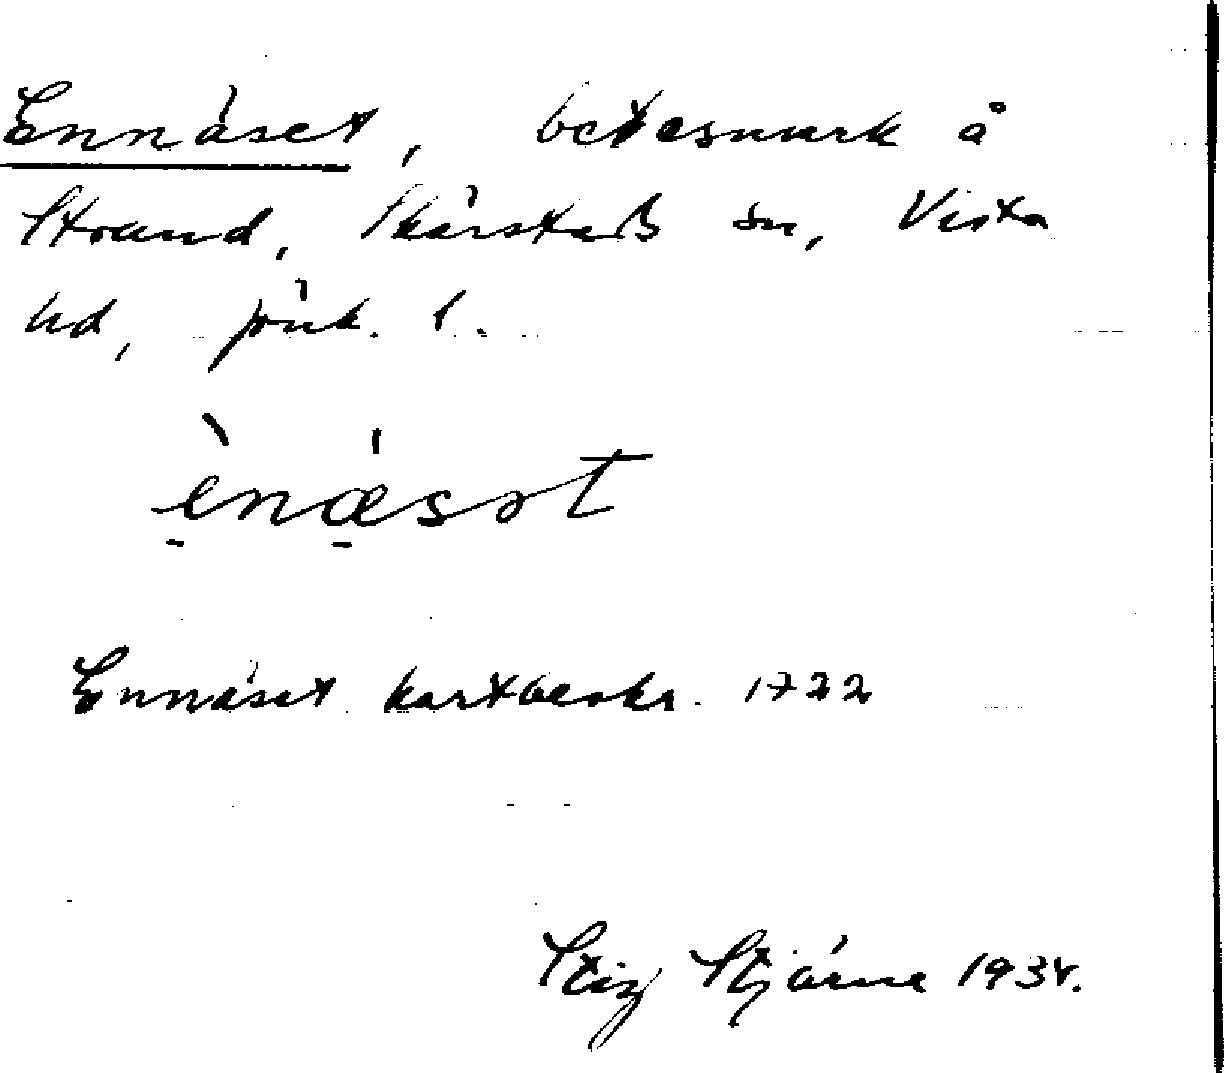 Ennäset, betesmark å
Strand, Skärstads sn, Vista
hd, Jönk. l.
ènæsət
Ennäset kartbeskr. 1722
Stig Stjärne 1934.